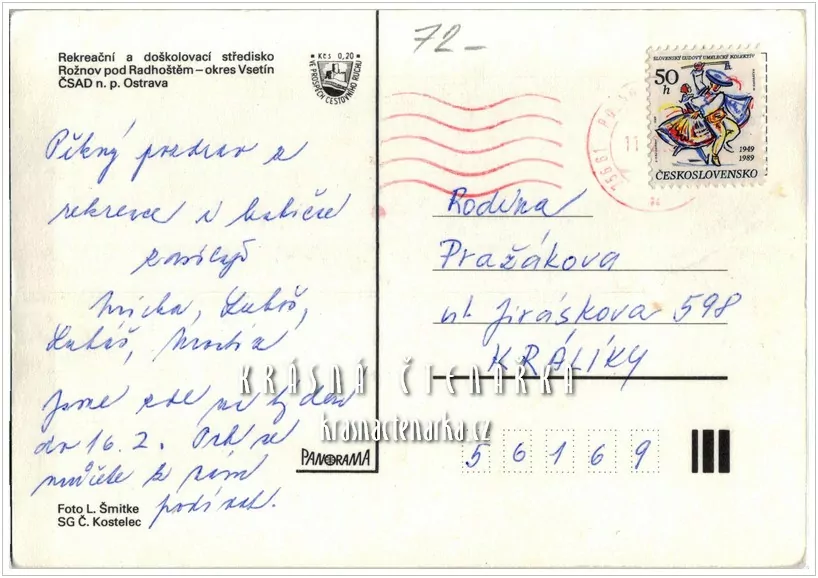 Rekreační a doškolovací středisko
Rožnov pod Radhoštěm – okres Vsetín
ČSAD n. p. Ostrava
Kčs 0,20
VE PROSPĚCH CESTOVNÍHO RUCHU
72_
SLOVENSKÝ ĽUDOVÝ UMELECKÝ KOLEKTÍV
50 h
1949
1989
ČESKOSLOVENSKO
11
Pěkný pozdrav z
rekreace i babičce
zasílají
Luboš,
Lukáš,
Jsme zde na týden
do 16.2. Pak se
můžete k nám
podívat.
Rodina
Pražákova
ul. Jiráskova 598
KRÁLÍKY
56169
KRÁSNÁ ČTENÁŘKA
krasnactenarka.cz
PANORAMA
Foto L. Šmitke
SG Č. Kostelec